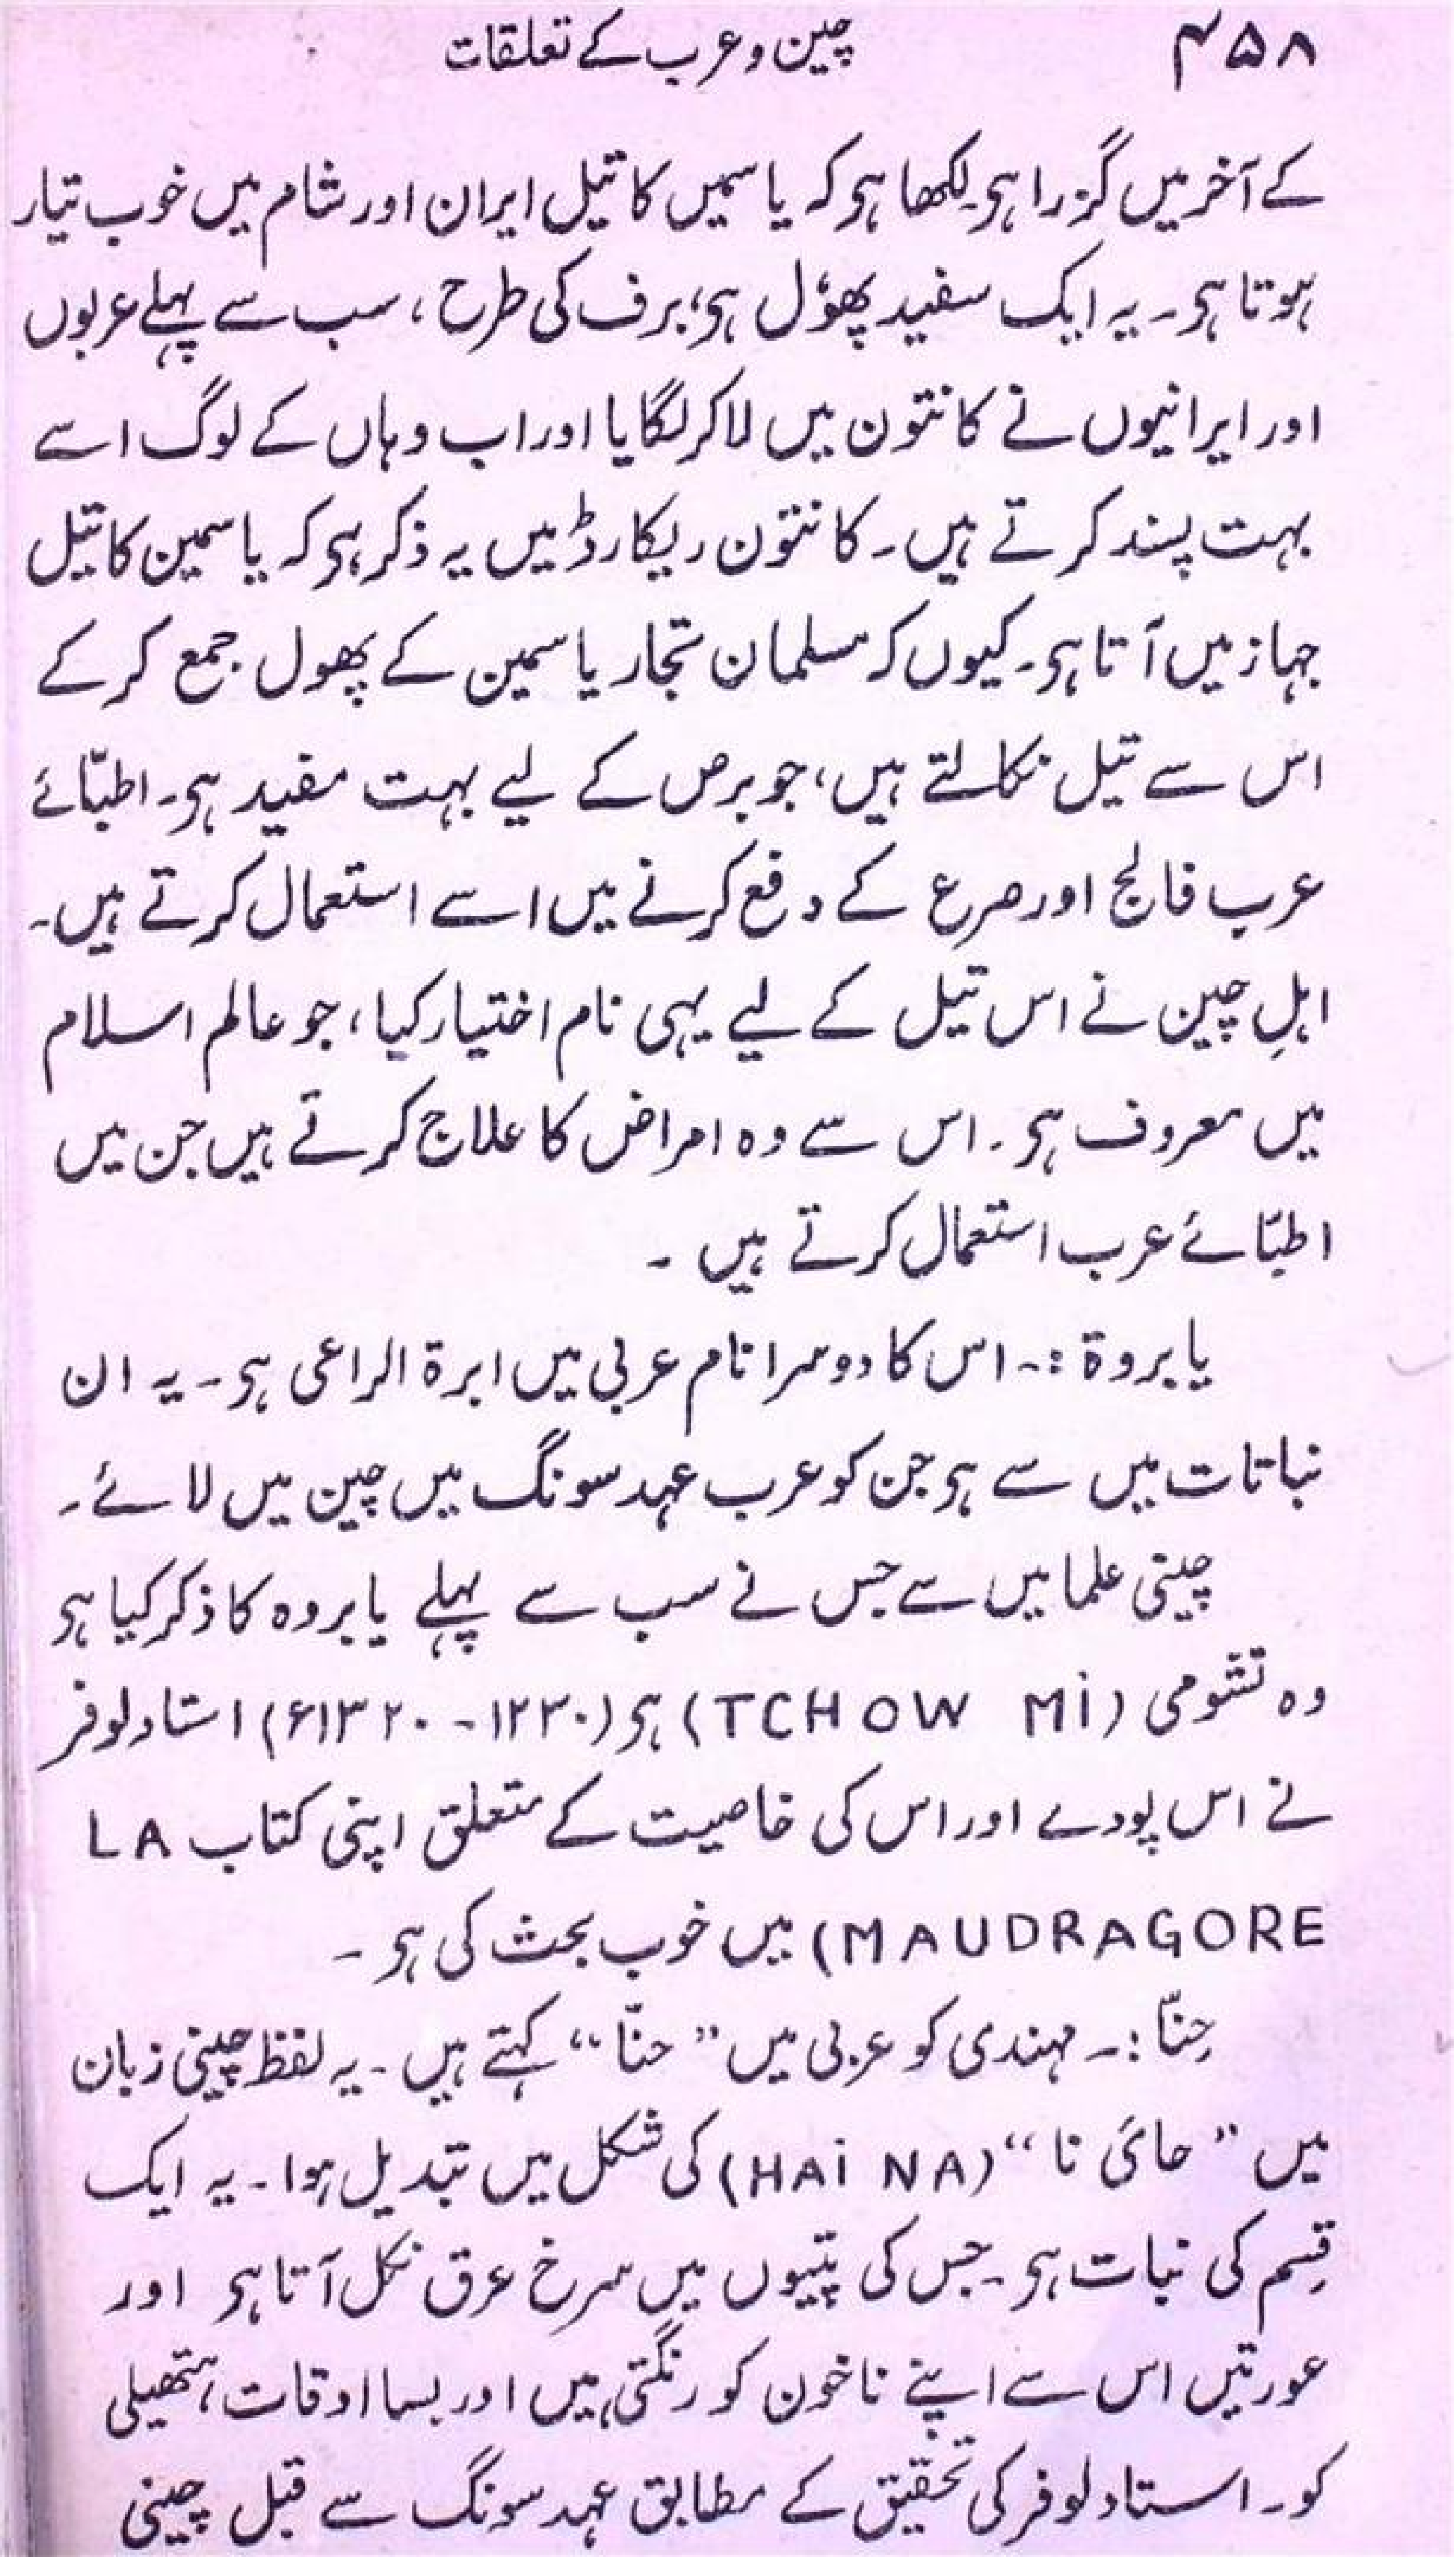 ۴۵۸ چین و عرب کے تعلقات
کے آخر میں گزرا ہی۔ لکھا ہی کہ یاسمیں کا تیل ایران اور شام میں خوب تیار
ہوتا ہی۔ یہ ایک سفید پھوٗل ہی، برف کی طرح، سب سے پہلے عربوں
اور ایرانیوں نے کانتون میں لاکر لگایا اور اب وہاں کے لوگ اسے
بہت پسند کرتے ہیں۔ کانتون ریکارڈ میں یہ ذکر ہی کہ یاسمین کا تیل
جہاز میں آتا ہی۔ کیوں کہ مسلمان تجار یاسمین کے پھول جمع کرکے
اس سے تیل نکالتے ہیں، جو برص کے لیے بہت مفید ہی۔ اطبّائے
عرب فالج اور صرع کے دفع کرنے میں اسے استعمال کرتے ہیں۔
اہلِ چین نے اس تیل کے لیے یہی نام اختیار کیا، جو عالم اسلام
میں معروف ہی۔ اس سے وہ امراض کا علاج کرتے ہیں جن میں
اطبّائے عرب استعمال کرتے ہیں۔
یابروۃ :۔ اس کا دوسرا نام عربی میں ابرۃ الراعی ہی۔ یہ ان
نباتات میں سے ہی جن کو عرب عہد سونگ میں چین میں لائے۔
چینی علما میں سے جس نے سب سے پہلے یابروہ کا ذکر کیا ہی
وہ تشومی (TCHOW Mi) ہی (۱۲۳۰ - ۱۳۲۰ء) استاد لوفر
نے اس پودے اور اس کی خاصیت کے متعلق اپنی کتاب LA
MAUDRAGORE) میں خوب بحث کی ہی۔
حِنّا :۔ مہندی کو عربی میں ”حنّا“ کہتے ہیں۔ یہ لفظ چینی زبان
میں ”حائ نا“ (HAi NA) کی شکل میں تبدیل ہوا۔ یہ ایک
قِسم کی نبات ہی۔ جس کی پتیوں میں سرخ عرق نکل آتا ہی اور
عورتیں اس سے اپنے ناخون کو رنگتی ہیں اور بسا اوقات ہتھیلی
کو۔ استاد لوفر کی تحقیق کے مطابق عہد سونگ سے قبل چینی